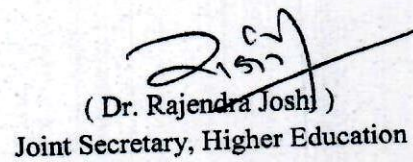 ( Dr. Rajendra Joshi )
Joint Secretary, Higher Education